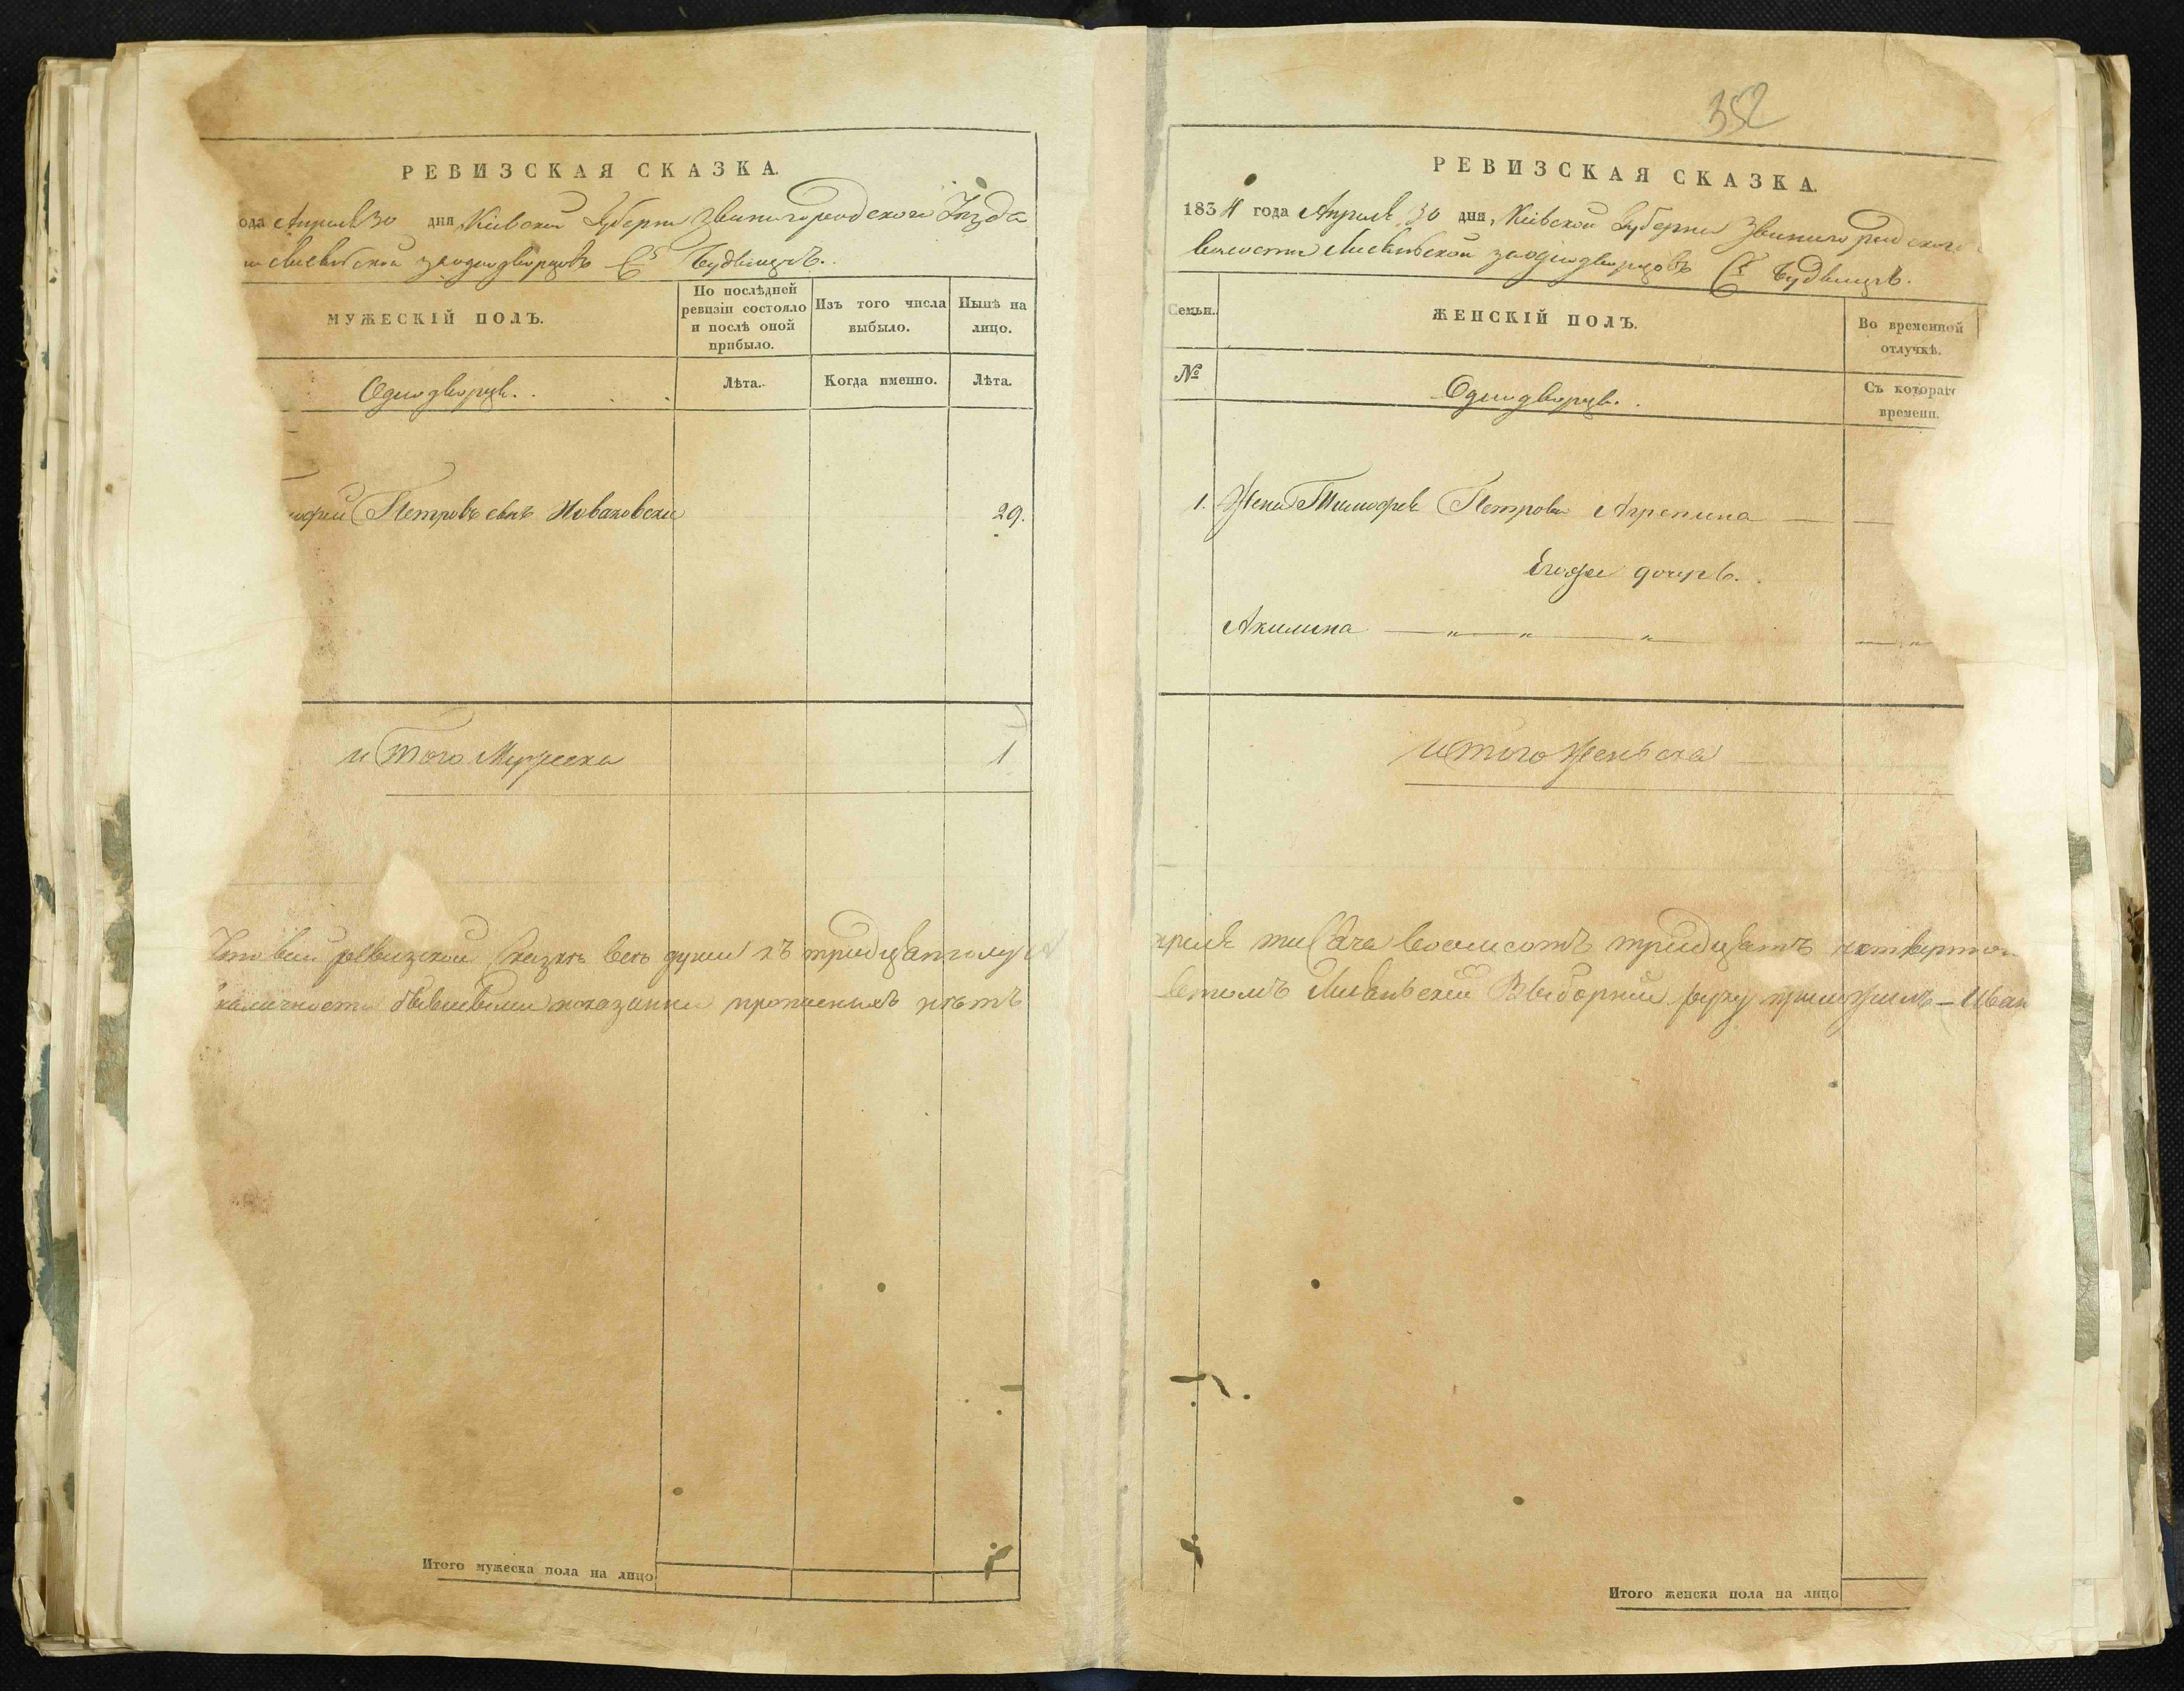 РЕВИЗСКАЯ СКАЗКА.
ода Апреля 30 дня, Кіевской Губерни Звинигородского Уезда
Лисянской заоднодворцовъ Будвищъ.
МУЖЕСКІЙ ПОЛЪ.
По послѣдней ревизіи состояло и послѣ оной прибыло.
Изъ того числа выбыло.
Нынѣ на лицо.
Однодворцы.
Лѣта.
Когда именно.
Лѣта.
мофей Петровъ сынъ Новаковски 29.
и Того Мужеска 1
ревизской сказкѣ всѣ души къ тридцатому
наличности показанны прописныхъ нѣтъ
Итого мужеска пола на лицо
352
РЕВИЗСКАЯ СКАЗКА.
1834 года Апреля 30 дня, Кіевской Губернии Звинигородского
волости Лисянской заоднодворцовъ Будвищъ.
Семьи.
ЖЕНСКІЙ ПОЛЪ.
Во временной отлучкѣ.
№
Однодворцы.
Съ котораго времени.
1. Жена Тимофея Петрова Агрепина
Егоже дочерь.
Акилина — „ — „ — „ — „
итого женьска
преля тисяча восемсотъ тридцатъ четвертого
Лисянской Выборний руку приложилъ – Иван
Итого женска пола на лицо